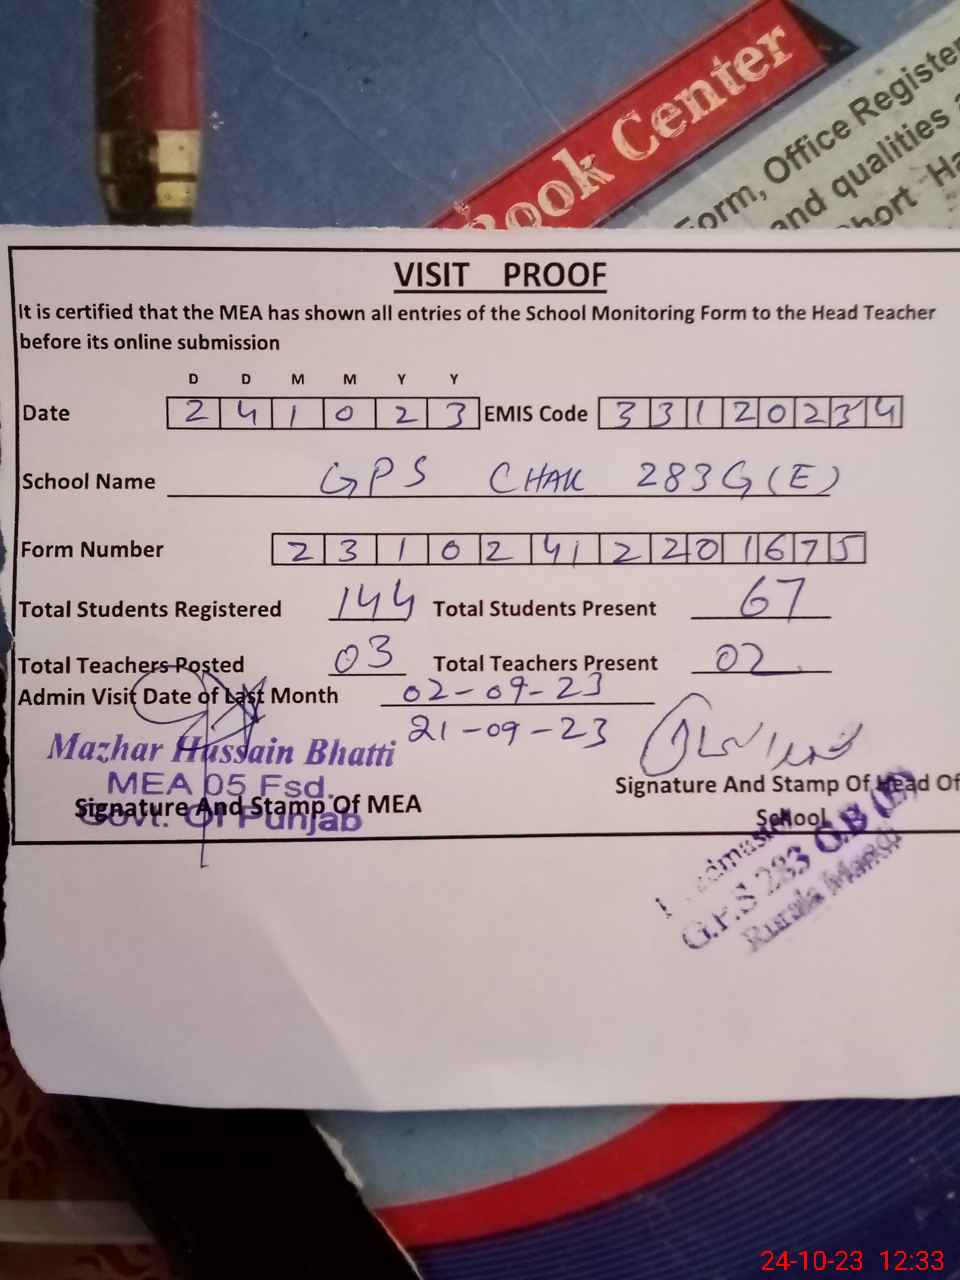 Book Center
Form, Office Register
and qualities
short
VISIT PROOF
It is certified that the MEA has shown all entries of the School Monitoring Form to the Head Teacher
before its online submission
D D M M Y Y
Date 2 4 1 0 2 3 EMIS Code 3 3 1 2 0 2 3 4
School Name GPS CHAK 283 G(E)
Form Number 2 3 1 0 2 4 1 2 2 0 1 6 7 5
Total Students Registered 144 Total Students Present 67
Total Teachers Posted 03 Total Teachers Present 02
Admin Visit Date of Last Month 02-09-23
21-09-23
Mazhar Hussain Bhatti
MEA 05 Fsd.
Govt. Of Punjab
Signature And Stamp Of MEA
Signature And Stamp Of Head Of
School
G.P.S 283 G.B (E)
24-10-23 12:33